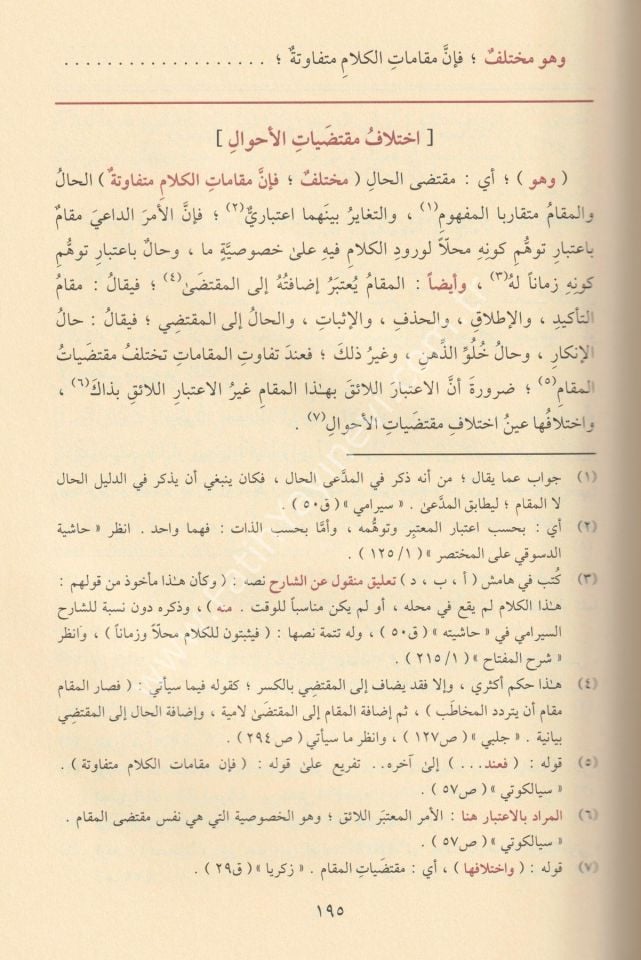 وهو مختلفٌ ؛ فإنَّ مقاماتِ الكلامِ متفاوتةٌ ؛ . . . . . . . . . . . . . . . . . . .
[ اختلافُ مقتضَياتِ الأحوالِ ]
( وهو ) ؛ أي : مقتضى الحالِ ( مختلفٌ ؛ فإنَّ مقاماتِ الكلامِ متفاوتةٌ ) الحالُ
والمقامُ متقاربا المفهومِ(١) ، والتغايرُ بينَهما اعتباريٌّ(٢) ؛ فإنَّ الأمرَ الداعيَ مقامٌ
باعتبارِ توهُّمِ كونِهِ محلّاً لورودِ الكلامِ فيهِ على خصوصيَّةٍ ما ، وحالٌ باعتبارِ توهُّمِ
كونِهِ زماناً لهُ(٣) ، وأيضاً : المقامُ يُعتبَرُ إضافتُهُ إلى المقتضَى(٤) ؛ فيقالُ : مقامُ
التأكيدِ ، والإطلاقِ ، والحذفِ ، والإثباتِ ، والحالُ إلى المقتضِي ؛ فيقالُ : حالُ
الإنكارِ ، وحالُ خُلُوِّ الذِّهنِ ، وغيرُ ذلكَ ؛ فعندَ تفاوتِ المقاماتِ تختلفُ مقتضَياتُ
المقامِ(٥) ؛ ضرورةَ أنَّ الاعتبارَ اللائقَ بهـٰذا المقامِ غيرُ الاعتبارِ اللائقِ بذاكَ(٦) ،
واختلافُها عينُ اختلافِ مقتضَياتِ الأحوالِ(٧) .
(١) جواب عما يقال ؛ من أنه ذكر في المدَّعى الحال ، فكان ينبغي أن يذكر في الدليل الحال
لا المقام ؛ ليطابق المدعىٰ . « سيرامي » ( ق٥٠ ) .
(٢) أي : بحسب اعتبار المعتبِر وتوهُّمه ، وأمَّا بحسب الذات : فهما واحد . انظر « حاشية
الدسوقي على المختصر » ( ١/ ١٢٥ ) .
(٣) كُتب في هامش ( أ ، ب ، د ) تعليق منقول عن الشارح نصه : ( وكأن هـٰذا مأخوذ من قولهم :
هـٰذا الكلام لم يقع في محله ، أو لم يكن مناسباً للوقت . منه ) ، وذكره دون نسبة للشارح
السيرامي في « حاشيته » ( ق٥٠ ) ، وله تتمة نصها : ( فيثبتون للكلام محلّاً وزماناً ) ، وانظر
« شرح المفتاح » ( ١/ ٢١٥ ) .
(٤) هـٰذا حكم أكثري ، وإلا فقد يضاف إلى المقتضِي بالكسر ؛ كقوله فيما سيأتي : ( فصار المقام
مقام أن يتردد المخاطَب ) ، ثم إضافة المقام إلى المقتضَى لامية ، وإضافة الحال إلى المقتضِي
بيانية . « جلبي » ( ص١٢٧ ) ، وانظر ما سيأتي ( ص٢٩٤ ) .
(٥) قوله : ( فعند... ) إلىٰ آخره.. تفريع على قوله : ( فإن مقامات الكلام متفاوتة ) .
« سيالكوتي » ( ص٥٧ ) .
(٦) المراد بالاعتبار هنا : الأمر المعتبَر اللائق ؛ وهو الخصوصية التي هي نفس مقتضى المقام .
« سيالكوتي » ( ص٥٧ ) .
(٧) قوله : ( واختلافها ) ، أي : مقتضَيات المقام . « زكريا » ( ق٢٩ ) .
١٩٥